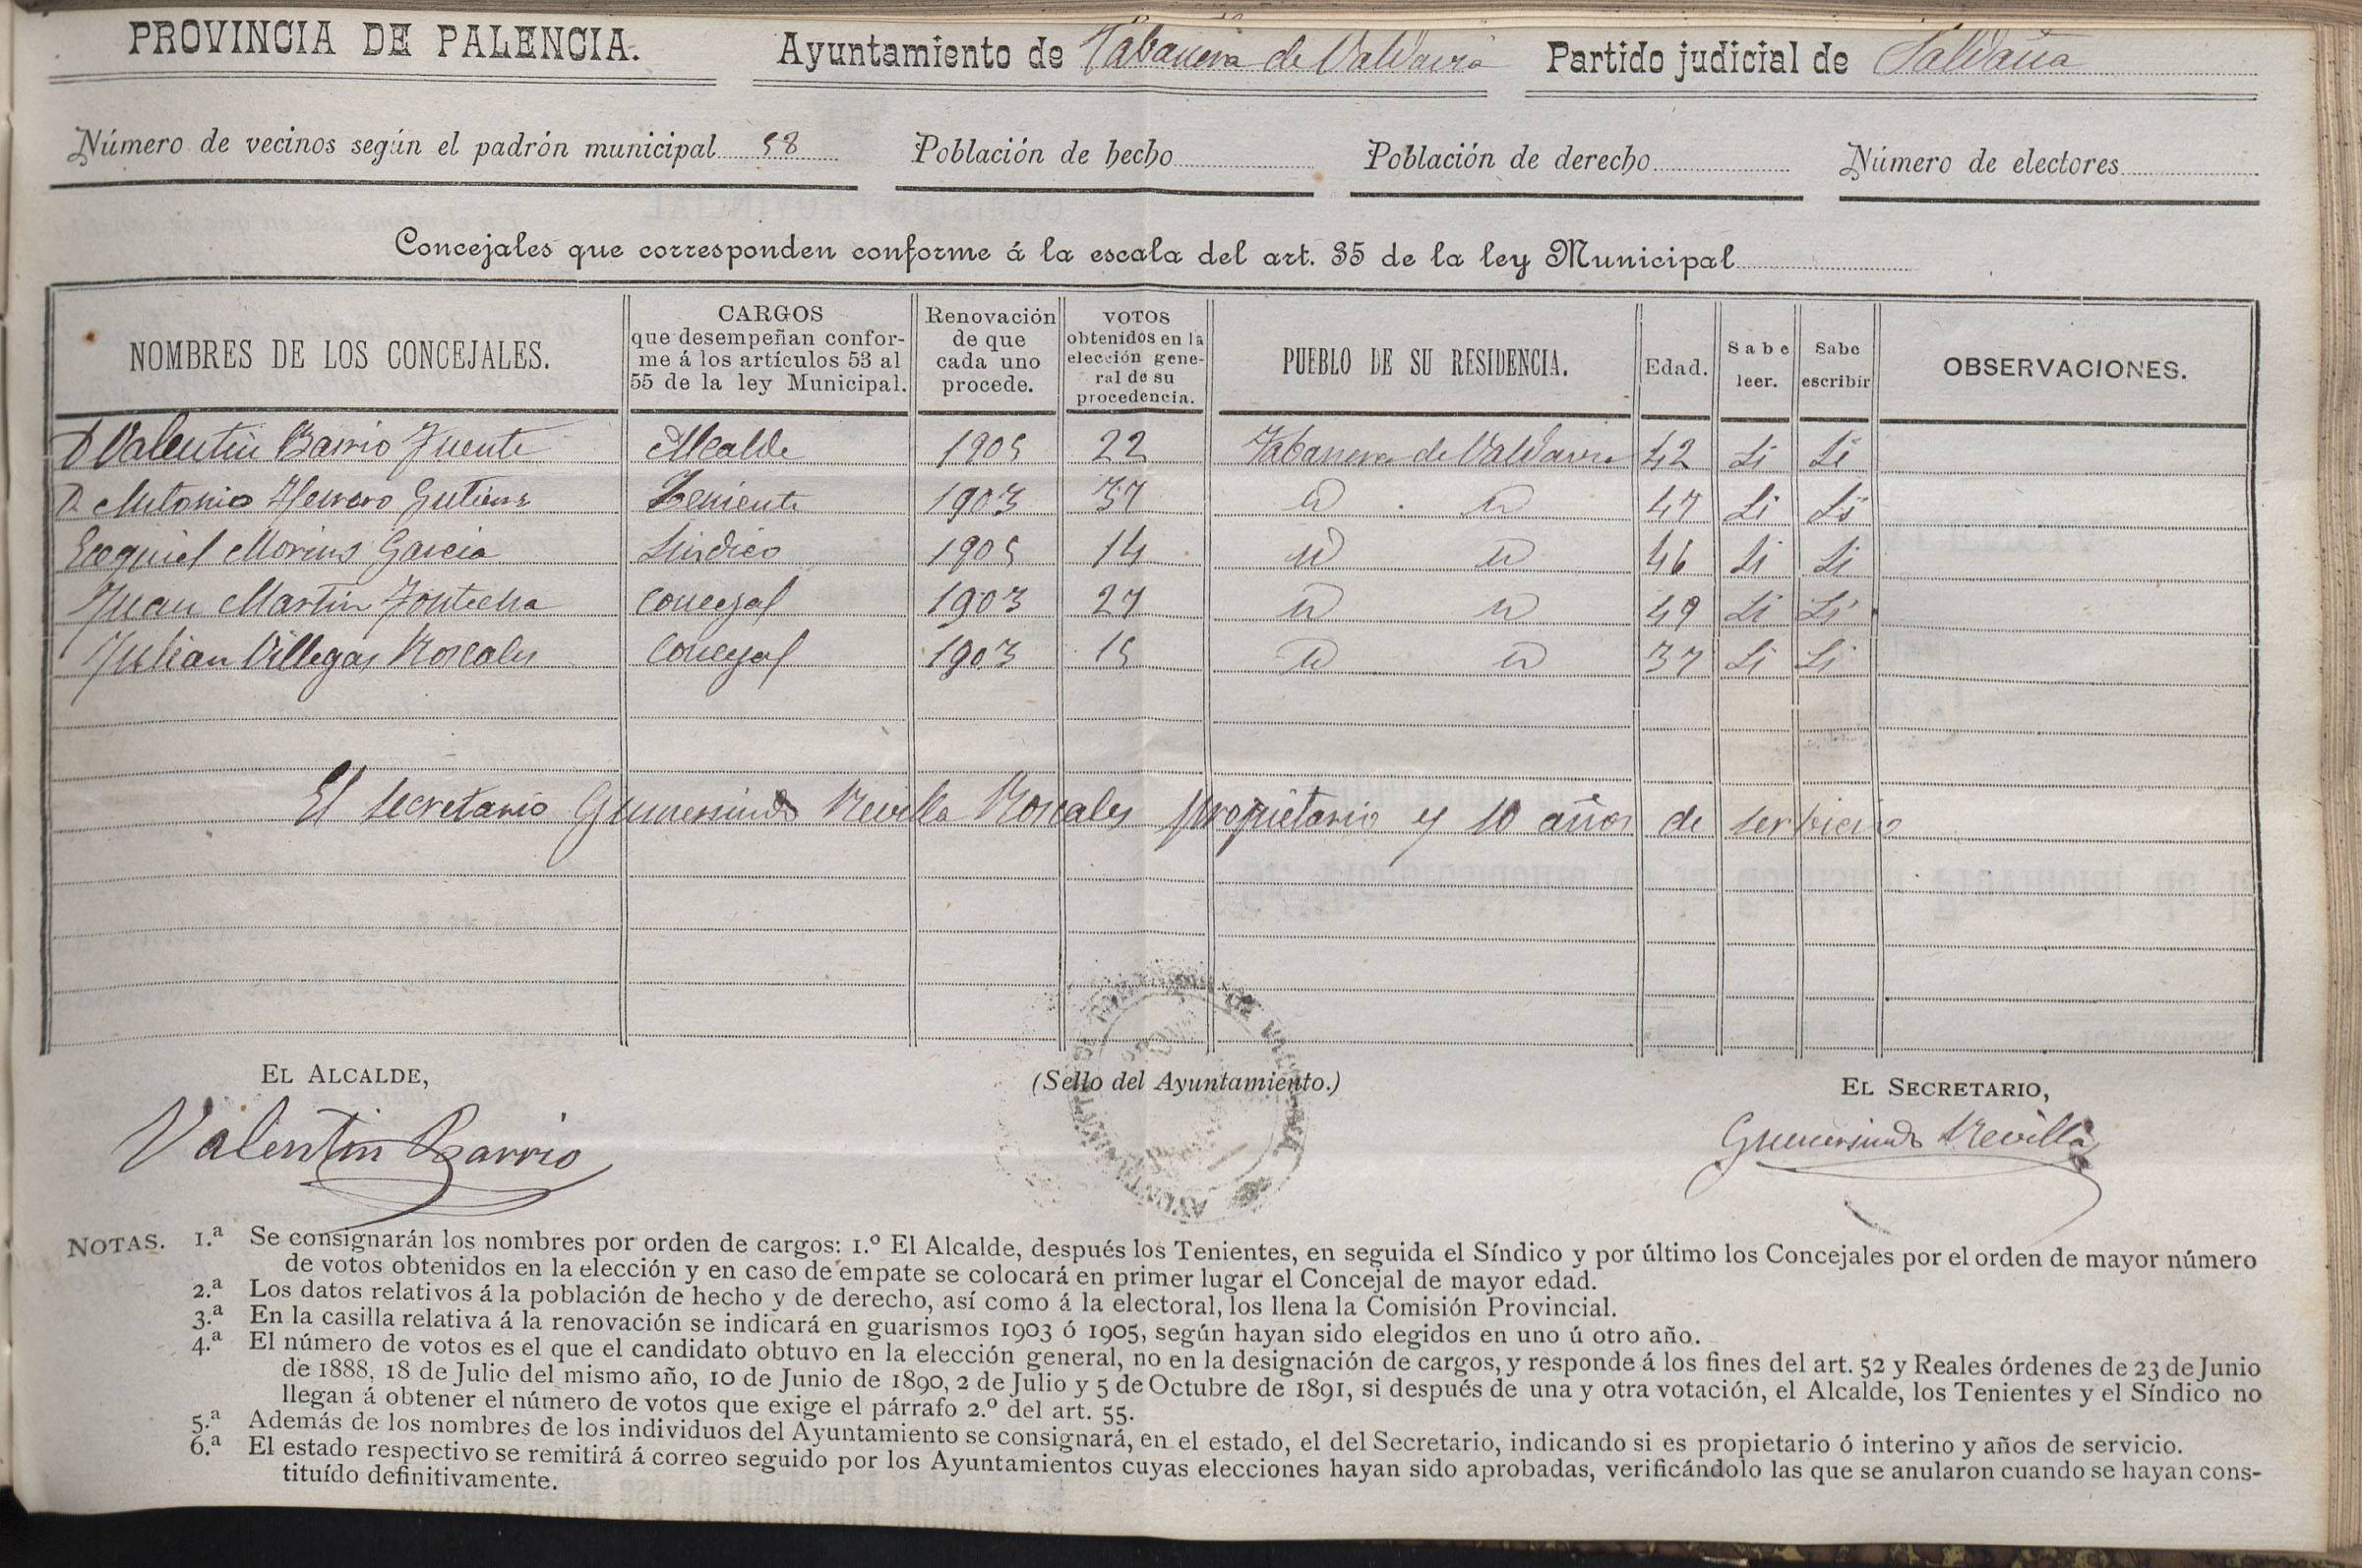 PROVINCIA DE PALENCIA. Ayuntamiento de Tabanera de Valdavia Partido judicial de Saldaña
Número de vecinos según el padrón municipal 58 Población de hecho Población de derecho Número de electores
Concejales que corresponden conforme á la escala del art. 35 de la ley Municipal
NOMBRES DE LOS CONCEJALES. CARGOS que desempeñan confor- me á los artículos 53 al 55 de la ley Municipal. Renovación de que cada uno procede. VOTOS obtenidos en la elección gene- ral de su procedencia. PUEBLO DE SU RESIDENCIA. Edad. Sabe leer. Sabe escribir OBSERVACIONES.
D Valentin Barrio Fuente Alcalde 1905 22 Tabanera de Valdavia 42 Si Si
D. Antonio Herrero Gutierrez Teniente 1903 37 id id 47 Si Si
Ezequiel Merino Garcia Sindico 1905 14 id id 46 Si Si
Juan Martin Fontecha Concejal 1903 27 id id 49 Si Si
Julian Villegas Roscales Concejal 1903 15 id id 37 Si Si
El secretario Gumersindo Revilla Roscales propietario y 10 años de servicio
EL ALCALDE, (Sello del Ayuntamiento.) EL SECRETARIO,
Valentin Barrio Gumersindo Revilla
NOTAS. 1.ª Se consignarán los nombres por orden de cargos: 1.º El Alcalde, después los Tenientes, en seguida el Síndico y por último los Concejales por el orden de mayor número
de votos obtenidos en la elección y en caso de empate se colocará en primer lugar el Concejal de mayor edad.
2.ª Los datos relativos á la población de hecho y de derecho, así como á la electoral, los llena la Comisión Provincial.
3.ª En la casilla relativa á la renovación se indicará en guarismos 1903 ó 1905, según hayan sido elegidos en uno ú otro año.
4.ª El número de votos es el que el candidato obtuvo en la elección general, no en la designación de cargos, y responde á los fines del art. 52 y Reales órdenes de 23 de Junio
de 1888, 18 de Julio del mismo año, 10 de Junio de 1890, 2 de Julio y 5 de Octubre de 1891, si después de una y otra votación, el Alcalde, los Tenientes y el Síndico no
llegan á obtener el número de votos que exige el párrafo 2.º del art. 55.
5.ª Además de los nombres de los individuos del Ayuntamiento se consignará, en el estado, el del Secretario, indicando si es propietario ó interino y años de servicio.
6.ª El estado respectivo se remitirá á correo seguido por los Ayuntamientos cuyas elecciones hayan sido aprobadas, verificándolo las que se anularon cuando se hayan cons-
tituído definitivamente.